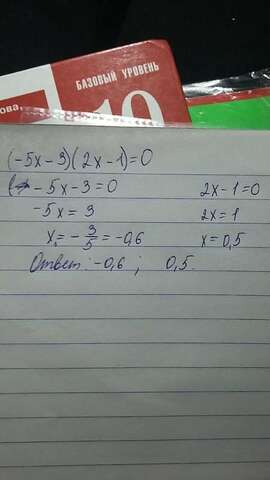 БАЗОВЫЙ УРОВЕНЬ
ова,
10
(-5x-3)(2x-1)=0
-5x-3=0 2x-1=0
-5x=3 2x=1
x=-3/5=-0,6 x=0,5
Ответ: -0,6 ; 0,5.